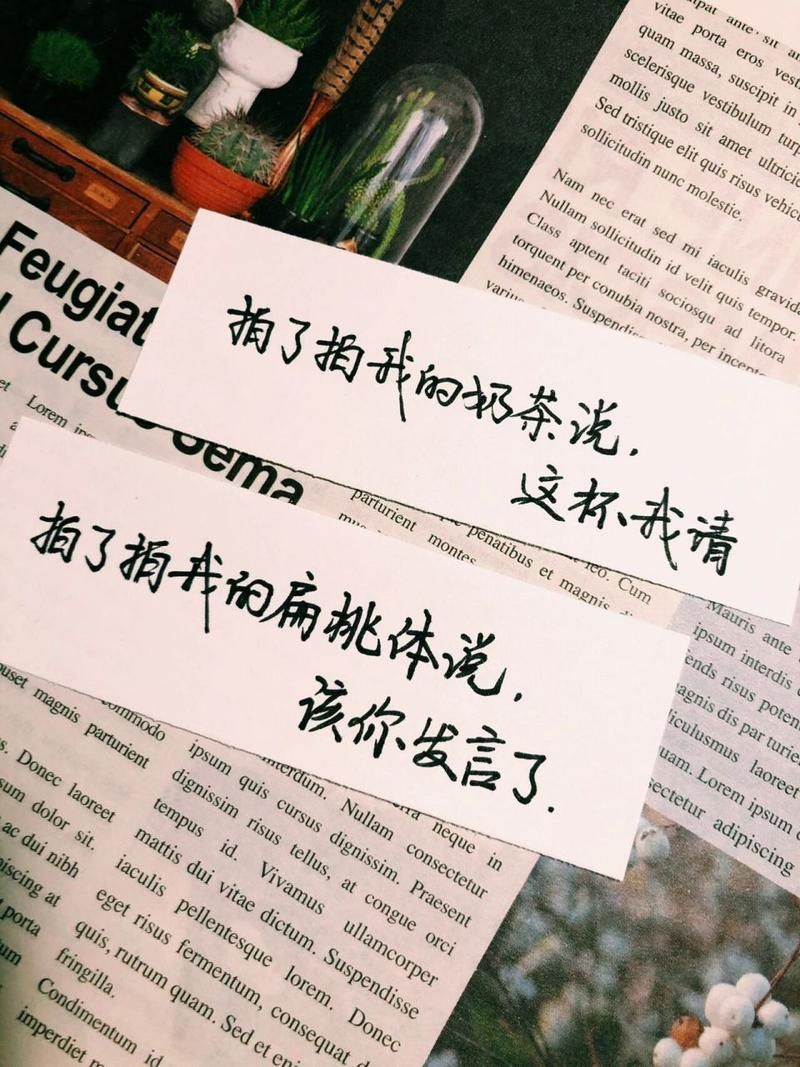 vitae porta eros
quam massa, suscipit in
scelerisque vestibulum
mollis justo sit amet
Sed tristique elit quis risus
sollicitudin nunc molestie.
Nam nec erat sed mi iaculis
Nullam sollicitudin id velit quis tempor.
Class aptent taciti sociosqu ad litora
torquent per conubia nostra, per
himenaeos.
Feugiat
拍了拍我的奶茶说,
这杯我请
拍了拍我的扁桃体说,
该你发言了.
parturient montes
penatibus et magnis
leo. Cum
Mauris ante
ipsum interdis
risus
magnis dis par
laoreet
Lorem ipsum
adipiscing
magnis parturient
Donec laoreet
dolor sit.
ac dui nibh
at
porta
commodo
ipsum quis cursus dignissim. Praesent
dignissim risus tellus, at congue orci
tempus id. Vivamus ullamcorper
mattis dui vitae dictum. Suspendisse
iaculis pellentesque lorem. Donec
eget risus fermentum, consequat
quis, rutrum quam. Sed et
fringilla.
Condimentum id
imperdiet
interdum. Nullam consectetur
neque in